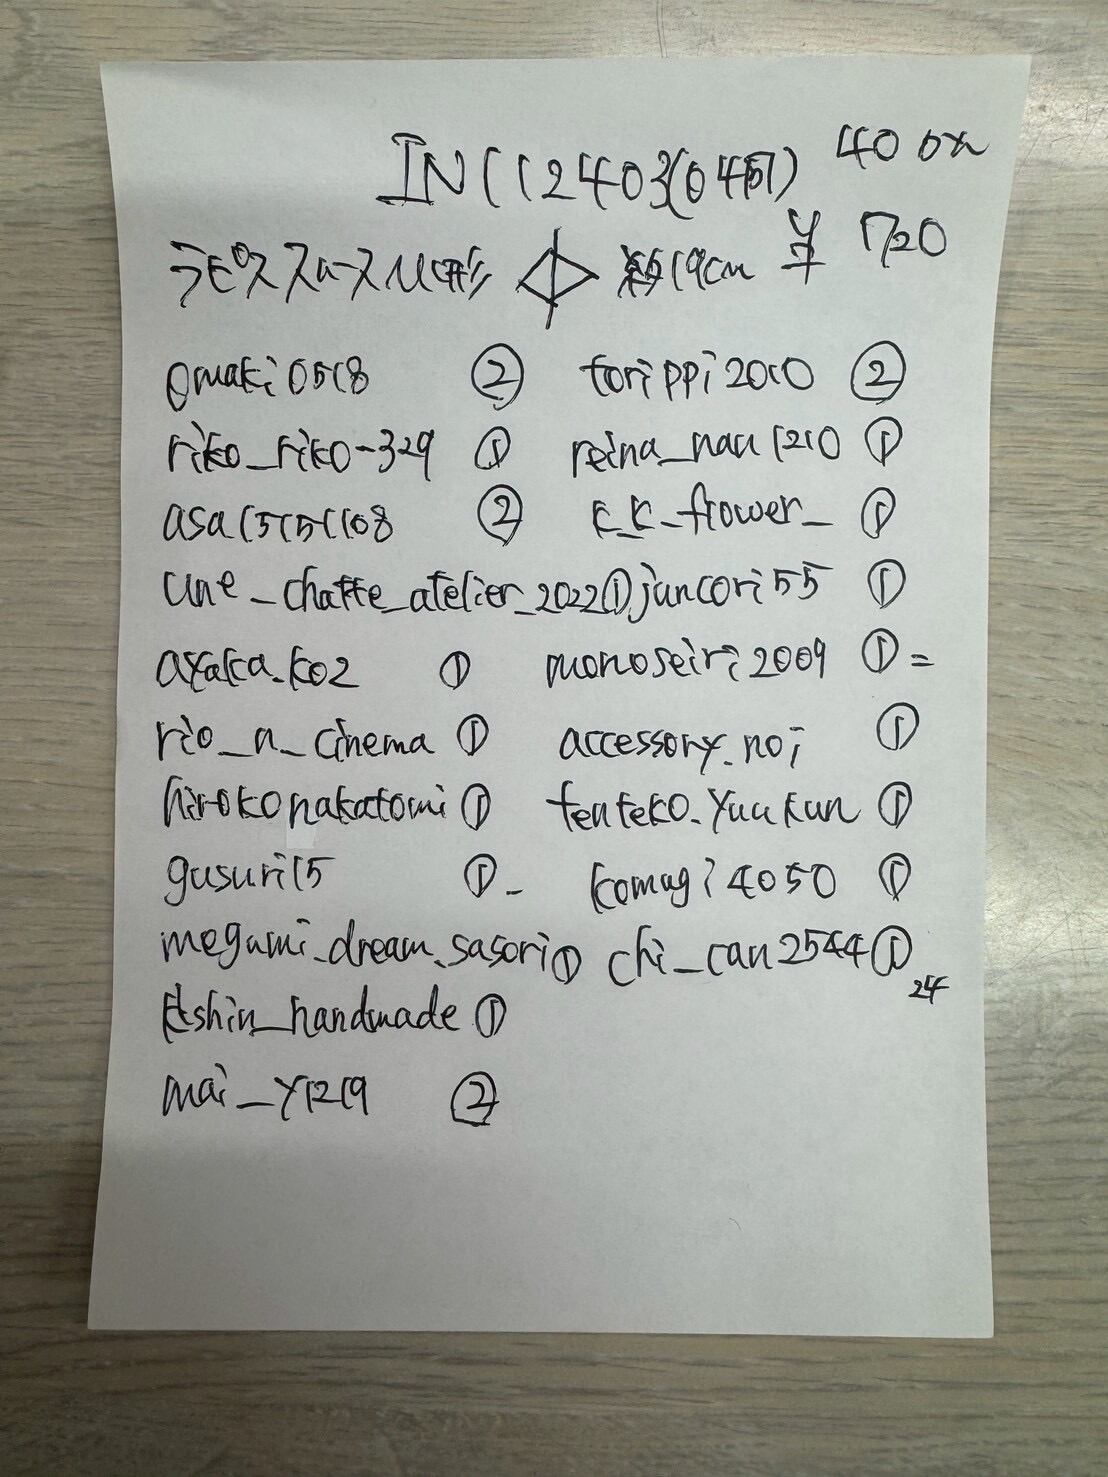 IN112403(0451) 400x
ラピス スロース ひし形 約19cm ¥ 1720
omaki0518 ② torippi2010 ②
riko_riko-329 ① reina_nau1210 ①
asa15151108 ② k_k_flower_ ①
une_chatte_atelier_2022① juncori55 ①
ayaka.ko2 ① monoseiri2009 ①=
rio_n_cinema ① accessory.noi ①
hirokonakatomi ① tenteko.yuukun ①
gusuri15 ①- komugi4050 ①
megumi_dream.sasori① chi_can2544①
24
ktshin_handmade ①
mai_y1219 ②